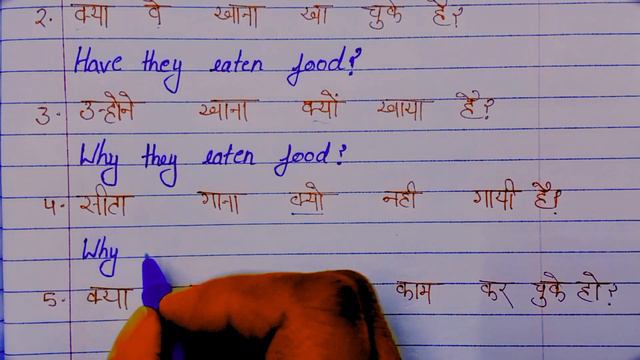 २. क्या वे खाना खा चुके है?
Have they eaten food?
3. उन्होने खाना क्यों खाया है?
Why they eaten food?
4. सीता गाना क्यो नही गायी है?
Why
5. क्या काम कर चुके हो?